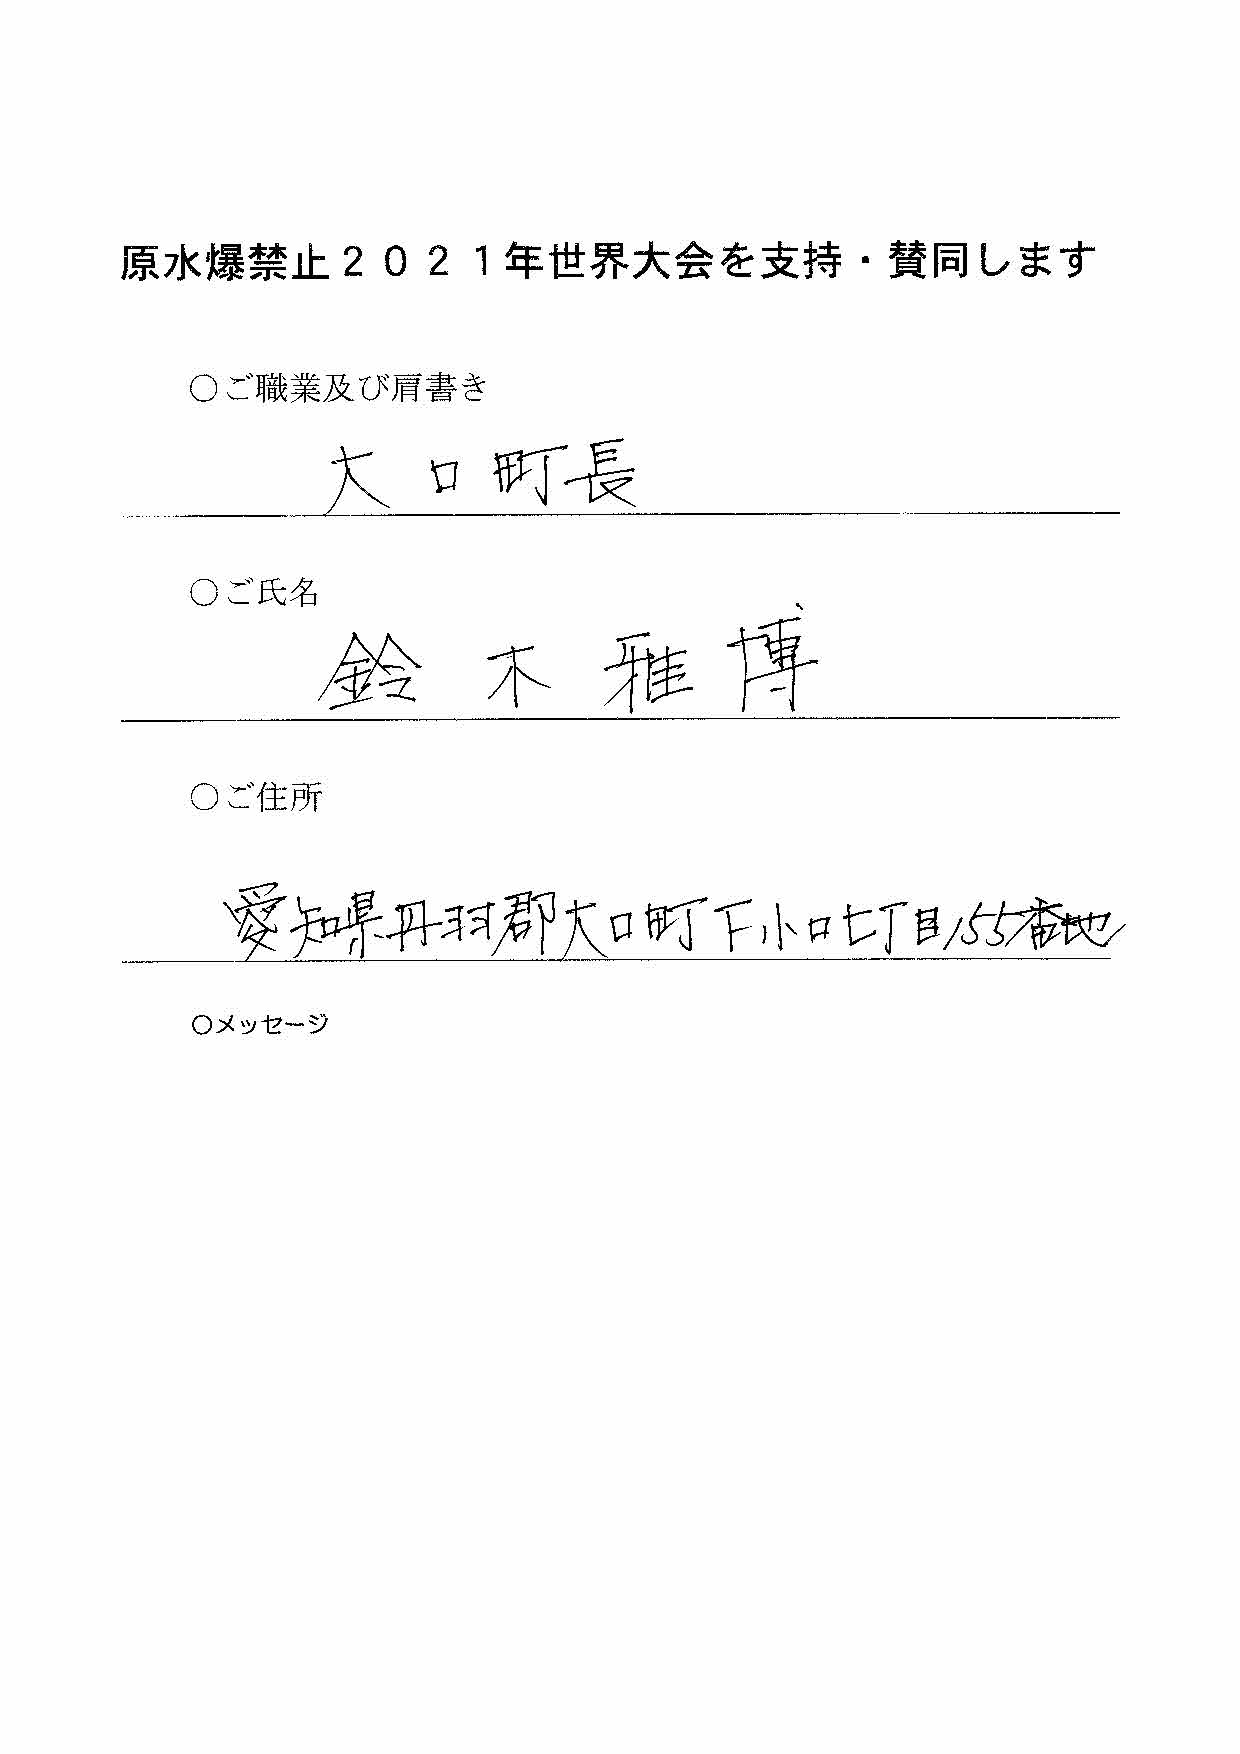 原水爆禁止２０２１年世界大会を支持・賛同します
○ご職業及び肩書き
大口町長
○ご氏名
鈴木雅博
○ご住所
愛知県丹羽郡大口町下小口七丁目155番地
○メッセージ